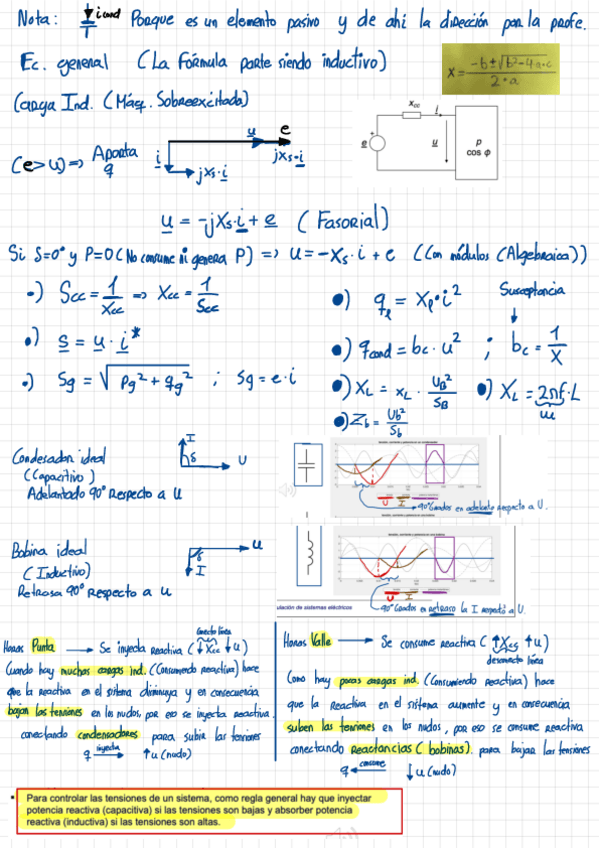 Nota: i cond Porque es un elemento pasivo y de ahí la dirección por la profe.
Ec. general (La fórmula parte siendo inductivo)
x = -b ± √b²-4·a·c / 2·a
Carga Ind. (Máq. Sobreexcitada)
(e>u) => Aporta q
i u e jXs·i
jXs·i
Xcc i
e u p cos φ
u = -jXs·i + e (Fasorial)
Si S=0° y P=0 (No consume ni genera P) => u = -Xs·i + e (Con módulos (Algebraica))
•) Scc = 1/Xcc => Xcc = 1/Scc
•) s = u · i*
•) Sg = √pg² + qg² ; Sg = e·i
•) qℓ = Xℓ·i² Susceptancia
•) qcond = bc · u² ; bc = 1/X
•) XL = xL · UB²/SB •) XL = 2πf·L
w
•) Zb = Ub²/Sb
Condesador ideal
(Capacitivo)
Adelantado 90° respecto a U
I δ U
90° Grados en adelanto respecto a U.
Bobina ideal
(Inductivo)
Retrasa 90° respecto a u
u I
U I
90° Grados en retraso la I respecto a U.
ulación de sistemas eléctricos
Horas Punta → Se inyecta reactiva (↓Xcc ↓u)
Conecto línea
Cuando hay muchas cargas ind. (Consumiendo reactiva) hace
que la reactiva en el sistema disminuya y en consecuencia
bajan las tensiones en los nudos, por eso se inyecta reactiva
conectando condensadores para subir las tensiones
q inyecta ↑u (nudo)
Horas Valle → Se consume reactiva (↑Xcc ↑u)
desconecto línea
Como hay pocas cargas ind. (Consumiendo Reactiva) hace
que la Reactiva en el sistema aumente y en consecuencia
suben las tensiones en los nudos, por eso se consume Reactiva
conectando Reactancias (bobinas). para bajar las tensiones
q consume ↓u (nudo)
• Para controlar las tensiones de un sistema, como regla general hay que inyectar
potencia reactiva (capacitiva) si las tensiones son bajas y absorber potencia
reactiva (inductiva) si las tensiones son altas.